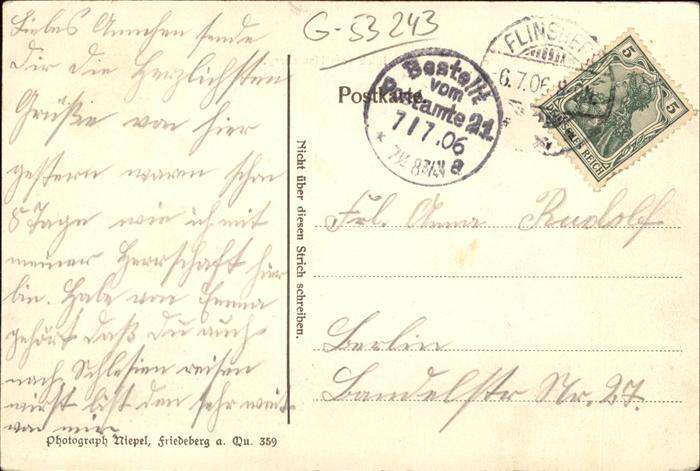 G-53243
Liebes Annchen sende
Dir die Herzlichsten
Grüße von hier
gestern waren schon
8 Tage wie ich mit
meiner Herrschaft hier
bin. Habe von Emma
gehört daß Du auch
nach Schlesien reisen
wirst bist den sehr weit
von mir
Photograph Niepel, Friedeberg a. Qu. 359
Nicht über diesen Strich schreiben.
Postkarte
Bestellt
vom
Postamte 21
7/7.06
a
FLINSBERG
6.7.06
5
5
REICH
Frl. Anna Rudolf
Berlin
Bandelstr Nr. 27.